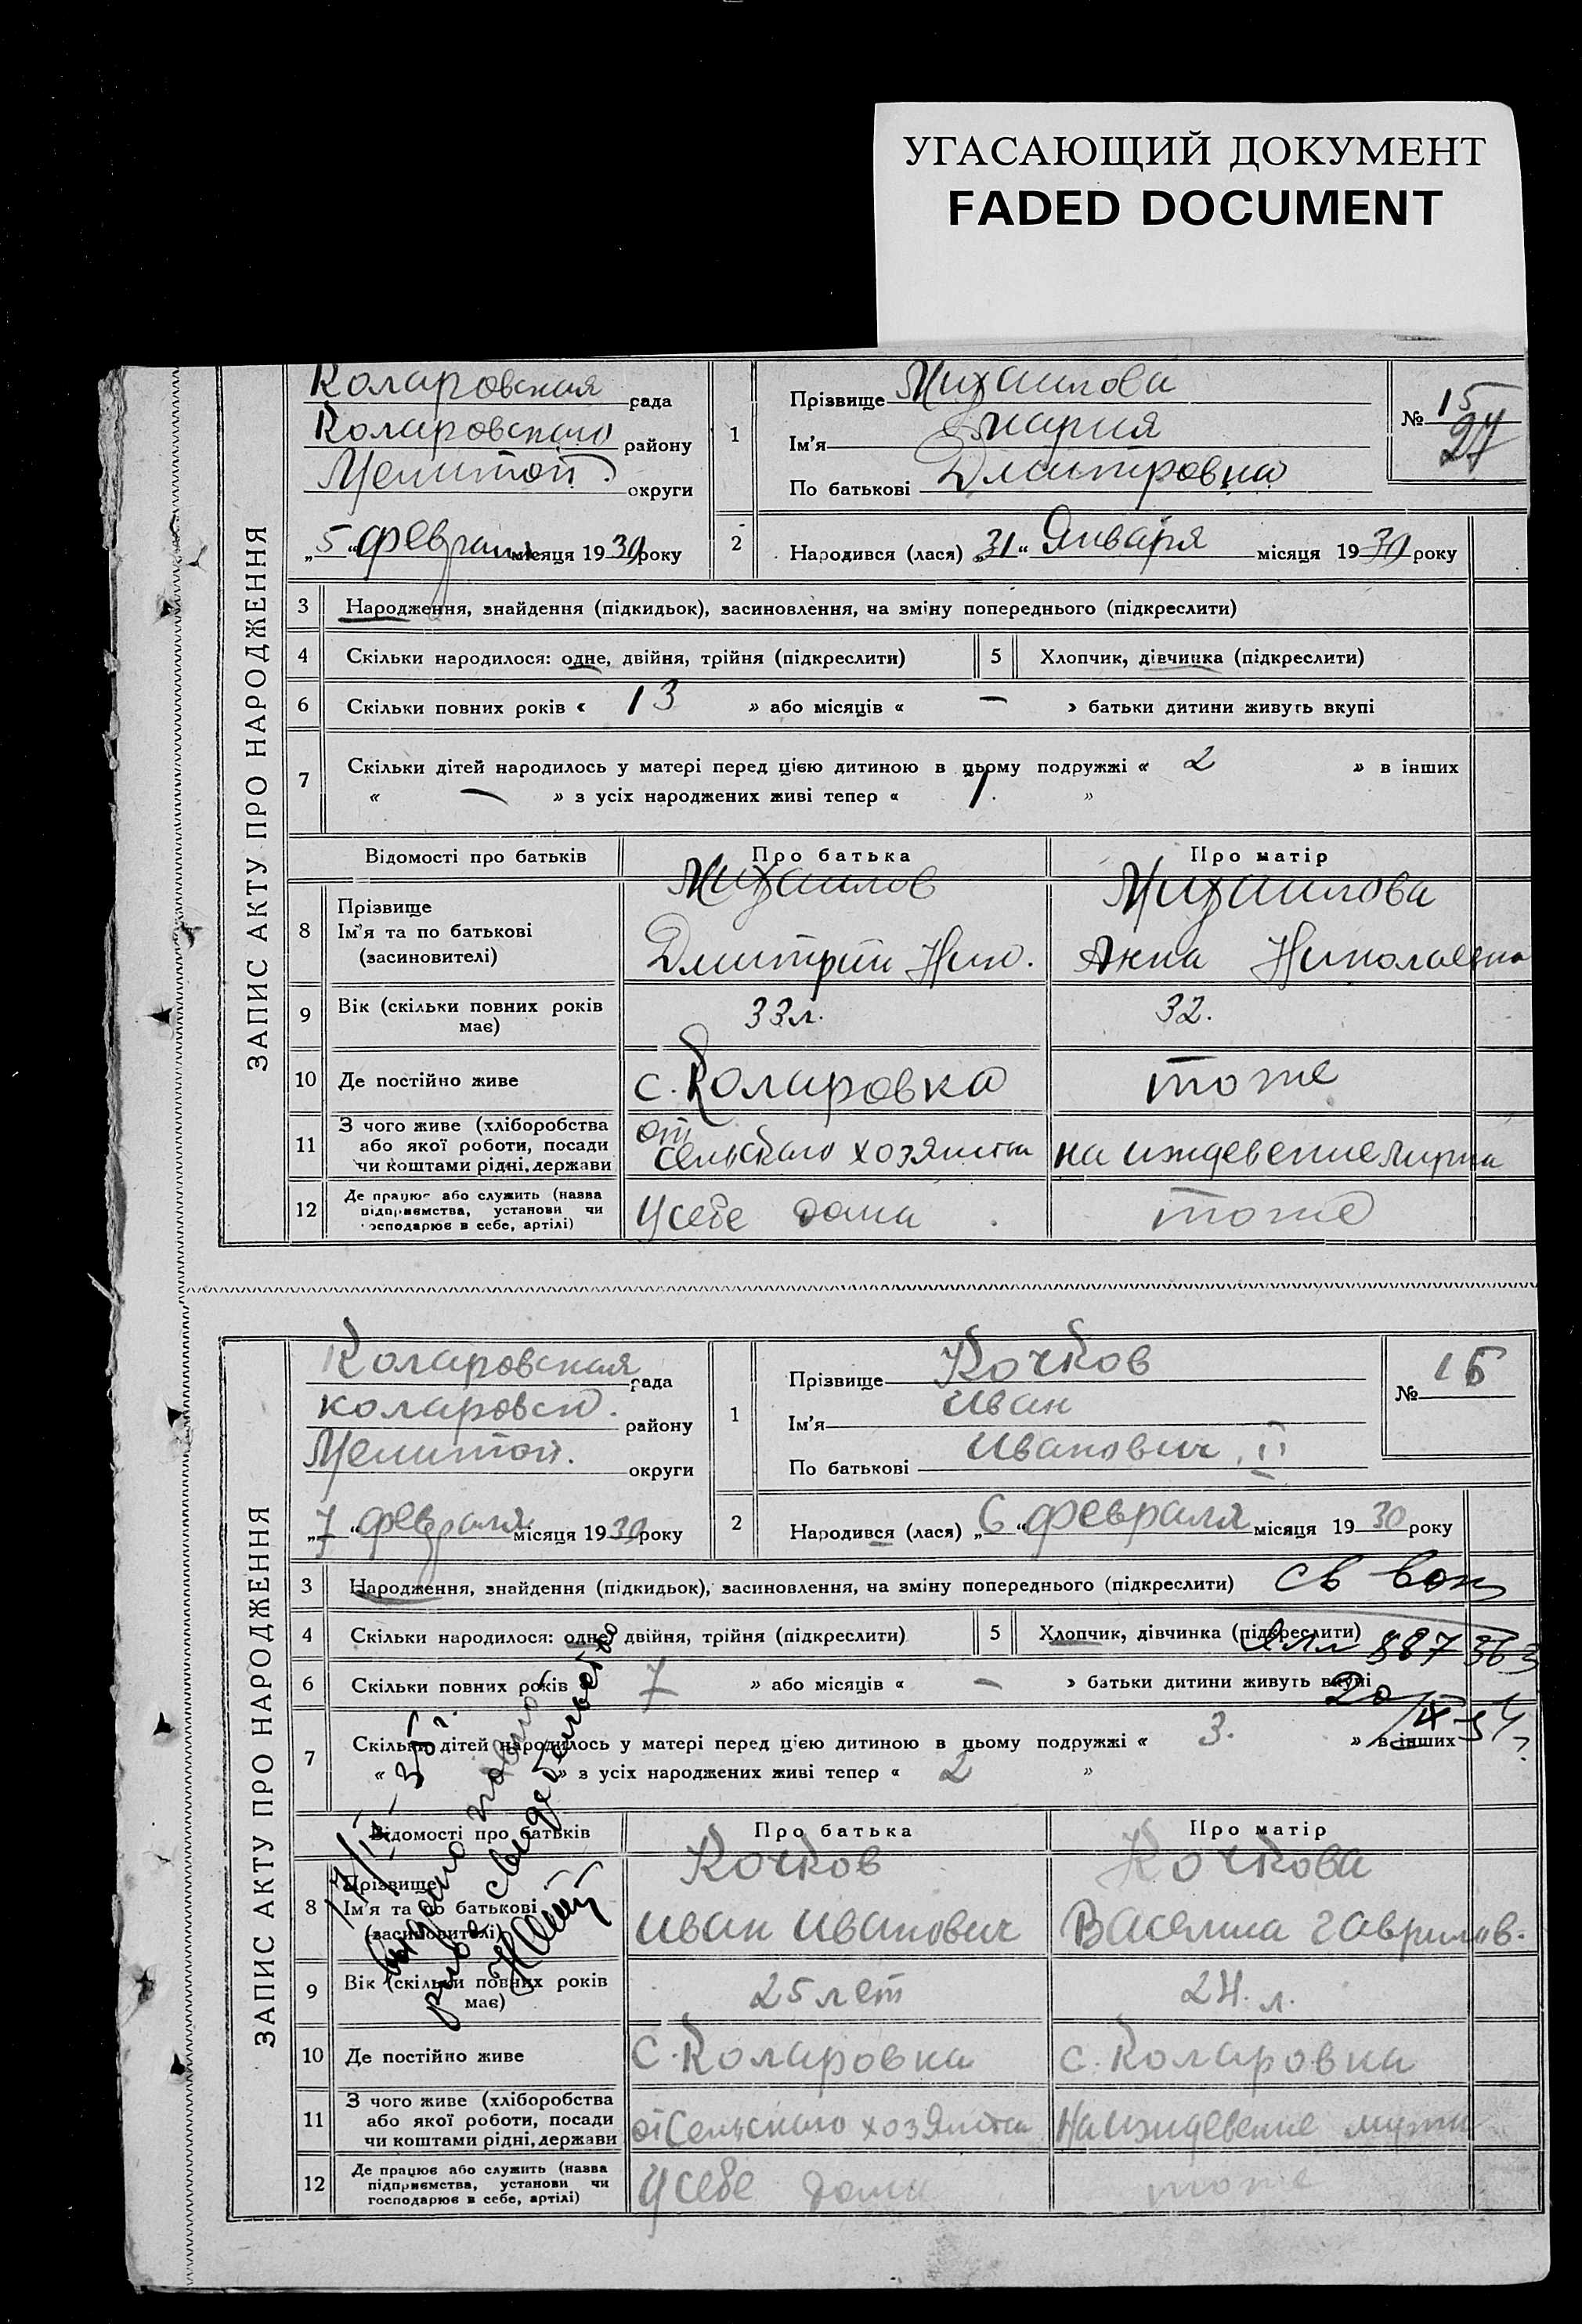 УГАСАЮЩИЙ ДОКУМЕНТ
FADED DOCUMENT
ЗАПИС АКТУ ПРО НАРОДЖЕННЯ
Коларовская рада
Коларовского району
Мелитоп. округи
„5“ февраля місяця 1930 року
1 Прізвище Михаилова
Ім'я Мария
По батькові Дмитровна
№ 15
27
2 Народився (лася) „31“ Января місяця 1930 року
3 Народження, знайдення (підкидьок), засиновлення, на зміну попереднього (підкреслити)
4 Скільки народилося: одне, двійня, трійня (підкреслити) 5 Хлопчик, дівчинка (підкреслити)
6 Скільки повних років « 13 » або місяців « — » батьки дитини живуть вкупі
7 Скільки дітей народилось у матері перед цією дитиною в цьому подружжі « 2 » в інших
« — » з усіх народжених живі тепер « 1. »
Відомості про батьків Про батька Про матір
8 Прізвище Ім'я та по батькові (засиновителі) Михаилов Михаилова
Дмитрий Ник. Анна Николаевна
9 Вік (скільки повних років має) 33 л. 32.
10 Де постійно живе с. Коларовка тоже
11 З чого живе (хліборобства або якої роботи, посади чи коштами рідні, держави от сельского хозяиства на иждевение мужа
12 Де працює або служить (назва підприємства, установи чи господарює в себе, артілі) У себе дома тоже
ЗАПИС АКТУ ПРО НАРОДЖЕННЯ
Коларовская рада
коларовск. району
Мелитоп. округи
„7“ февраля місяця 1930 року
1 Прізвище Кочков
Ім'я Иван
По батькові Иванович II
№ 16
2 Народився (лася) „6“ февраля місяця 1930 року
3 Народження, знайдення (підкидьок), засиновлення, на зміну попереднього (підкреслити) св
4 Скільки народилося: одне, двійня, трійня (підкреслити) 5 Хлопчик, дівчинка (підкреслити)
887363
6 Скільки повних років « 7 » або місяців « — » батьки дитини живуть вкупі
20/IX-54 г.
7 Скільки дітей народилось у матері перед цією дитиною в цьому подружжі « 3. » в інших
« » з усіх народжених живі тепер « 2 »
выдано
свидетельство
Відомості про батьків Про батька Про матір
8 Прізвище Ім'я та по батькові (засиновителі) Кочков Кочкова
Иван Иванович Васелиса Гаврилов.
9 Вік (скільки повних років має) 25 лет 24. л.
10 Де постійно живе с. Коларовка с. Коларовка
11 З чого живе (хліборобства або якої роботи, посади чи коштами рідні, держави от Сельского хозяиства На иждевение мужа
12 Де працює або служить (назва підприємства, установи чи господарює в себе, артілі) У себе дома тоже